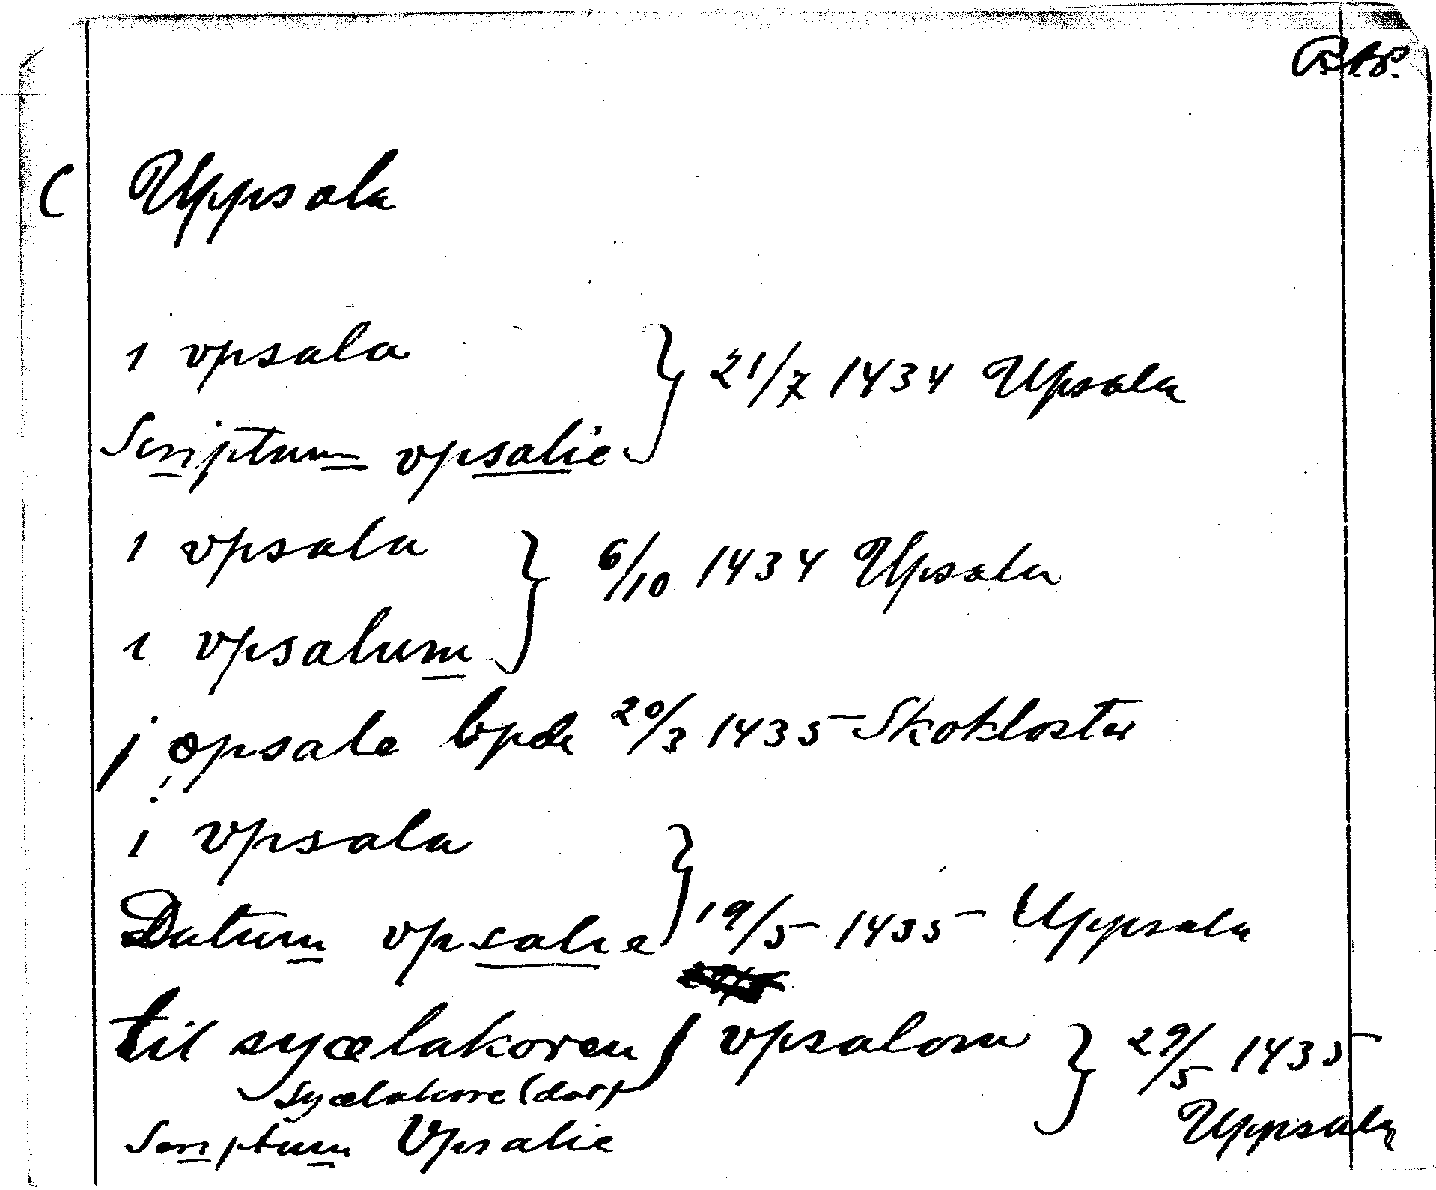 RAP.
C Uppsala
i vpsala
Scriptum vpsalie } 21/7 1434 Upsala
i vpsala
i vpsalum } 6/10 1434 Upsala
j opsale 20/3 1435 Skokloster
i vpsala
Datum vpsalie } 19/5 1435 Uppsala
til syælakoren j vpsalom } 29/5 1435
syælakore (dat)
Scriptum Vpsalie Uppsala